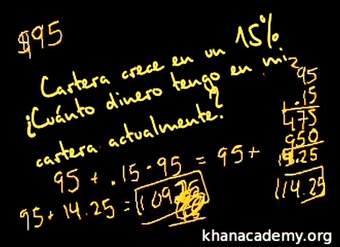 $95
Cartera crece en un 15%.
¿Cuánto dinero tengo en mi
cartera actualmente?
95 + .15 · 95 = 95 +
95 + 14.25 = 109.25
95
.15
475
950
14.25
114.25
khanacademy.org